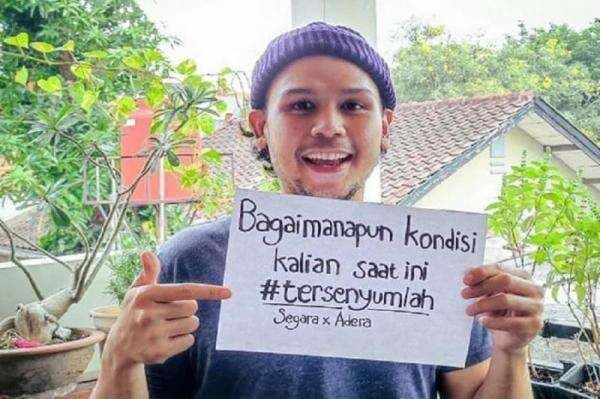 Bagaimanapun kondisi
kalian saat ini
#tersenyumlah
Segara x Adera